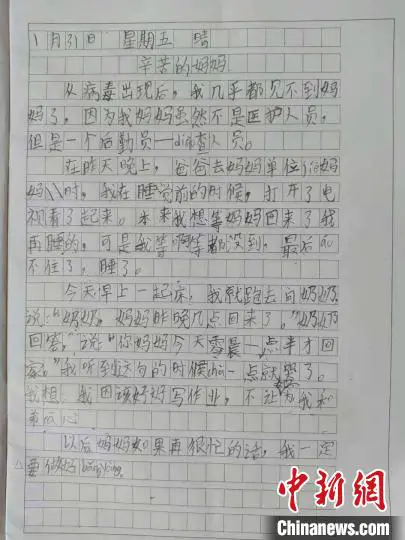 1月31日 星期五 晴
辛苦的妈妈
从病毒出现后，我几乎都见不到妈
妈了。因为我妈妈虽然不是医护人员，
但是一个后勤员——diao查人员。
在昨天晚上，爸爸去妈妈单位jie妈
妈时，我在睡觉前的时候，打开了电
视看了起来。本来我想等妈妈回来了我
再睡的，可是我等啊等都没到，最后
不住了，睡了。
今天早上一起床，我就跑去问奶奶，
说：“奶奶，妈妈昨晚几点回来了。”奶奶
回答，说“你妈妈今天零晨一点半才回
家。”我听到这句的时候 一点就哭了。
我想，我因该好好写作业，不让为我和
弟 心
以后妈妈如果再很忙的话，我一定
要 妈
中新网
Chinanews.com